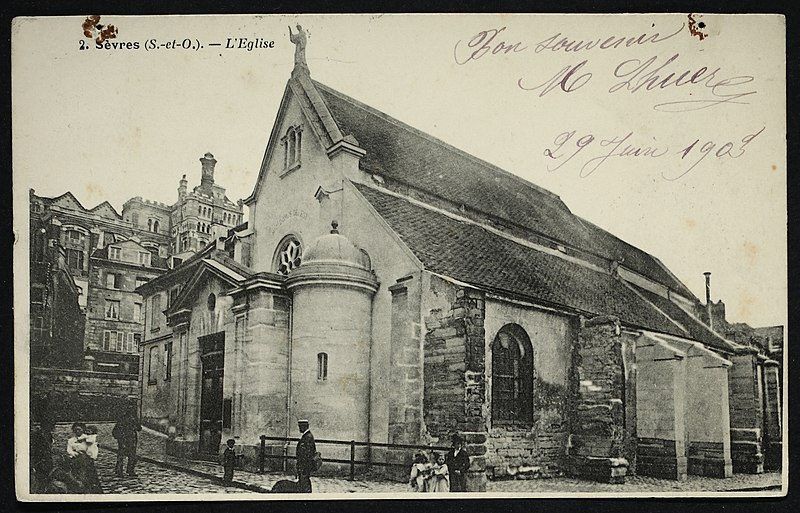 2. Sèvres (S.-et-O.). — L'Eglise
Bon souvenir
M Lhuer
29 Juin 1903